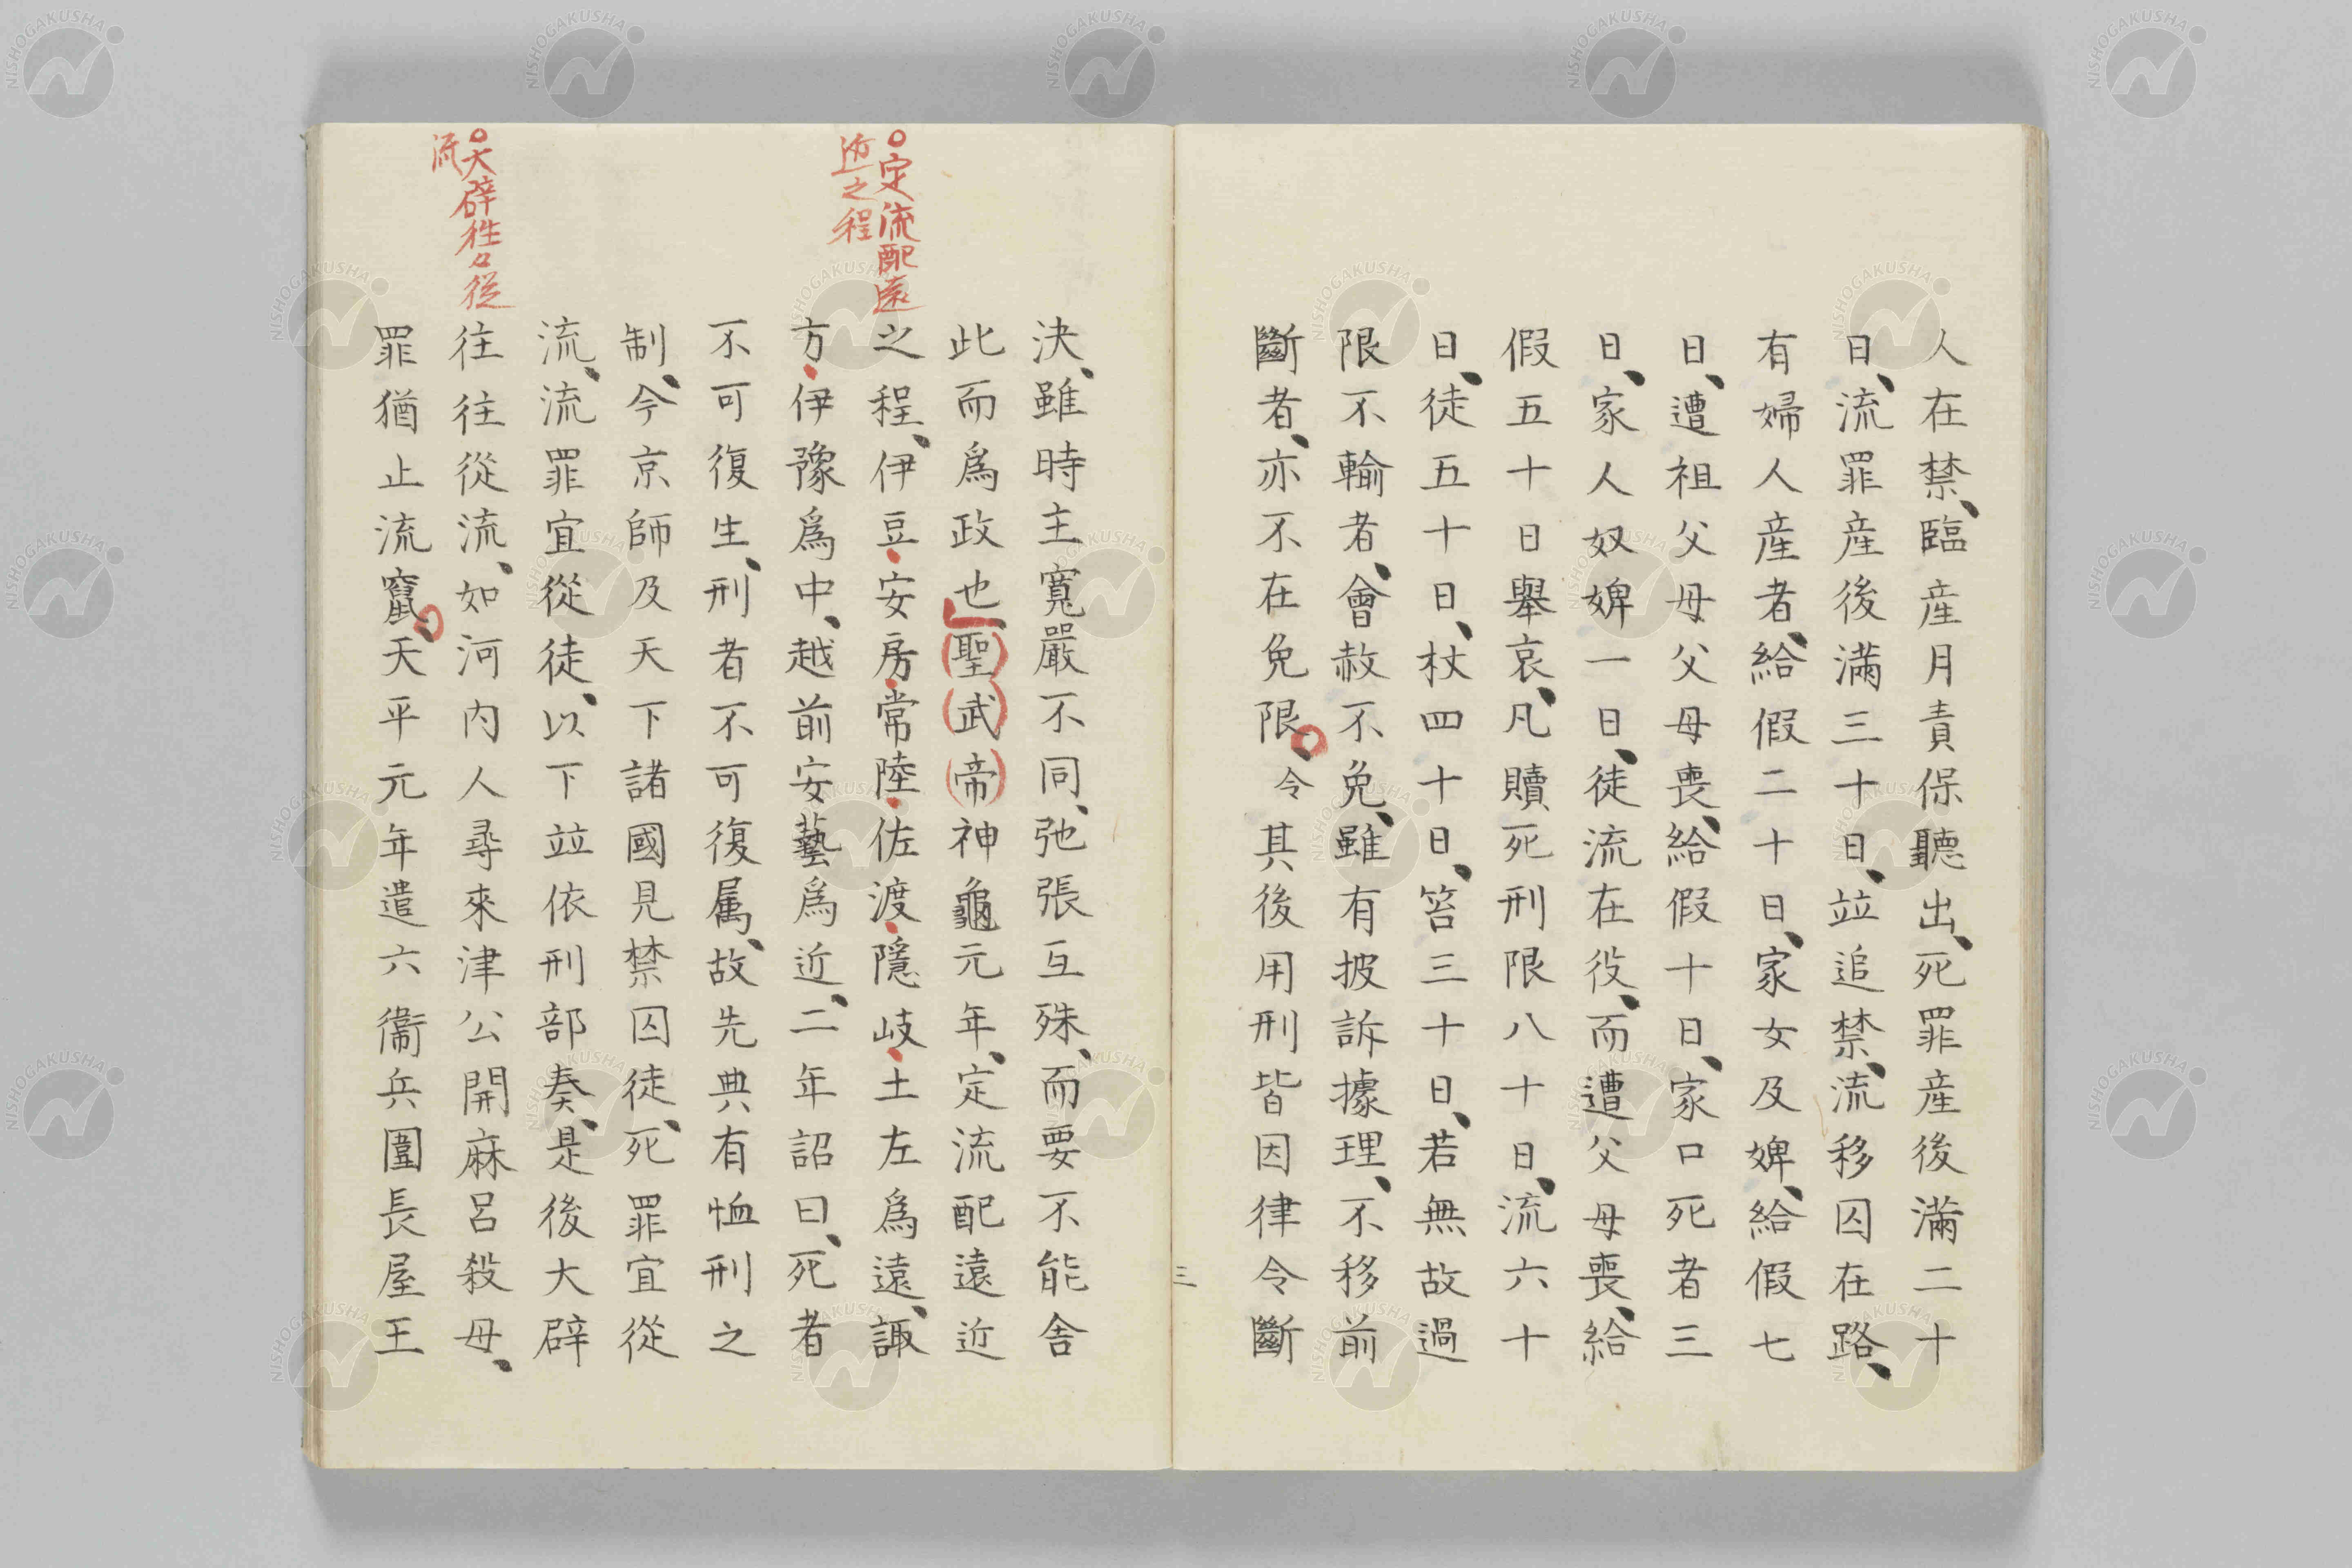 人在禁、臨産月責保聽出、死罪産後滿二十
日、流罪産後滿三十日、竝追禁、流移囚在路、
有婦人産者、給假二十日、家女及婢、給假七
日、遭祖父母父母喪、給假十日、家口死者三
日、家人奴婢一日、徒流在役、而遭父母喪、給
假五十日舉哀、凡贖死刑限八十日、流六十
日、徒五十日、杖四十日、笞三十日、若無故過
限不輸者、會赦不免、雖有披訴據理、不移前
斷者、亦不在免限、令其後用刑皆因律令斷
三
決、雖時主寬嚴不同、弛張互殊、而要不能舍
此而爲政也、聖武帝神龜元年、定流配遠近
之程、伊豆・安房・常陸・佐渡・隱岐・土左爲遠、諏
方・伊豫爲中、越前安藝爲近、二年詔曰、死者
不可復生、刑者不可復属、故先典有恤刑之
制、今京師及天下諸國見禁囚徒、死罪宜從
流、流罪宜從徒、以下竝依刑部奏、是後大辟
往往從流、如河内人尋來津公開麻呂殺母、
罪猶止流竄、天平元年遣六衞兵圍長屋王
○定流配遠
近之程
○大辟徃々從
流
NISHOGAKUSHA